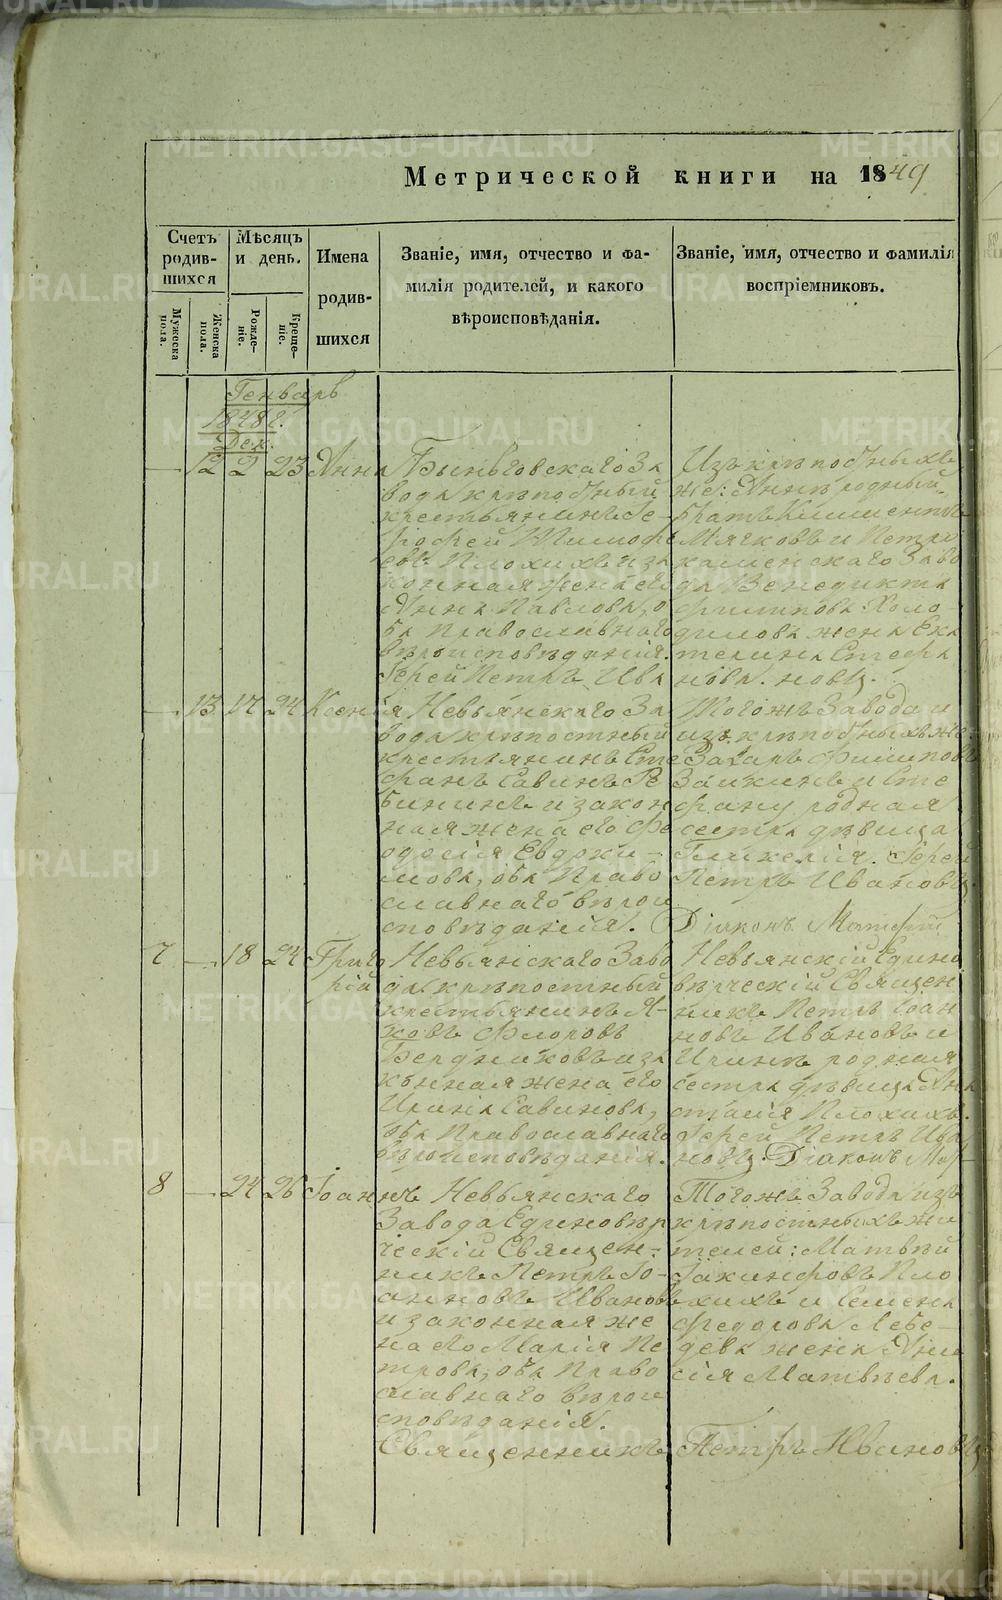 METRIKI.GASO-URAL.RU
Метрической книги на 1849
Счетъ родив-шихся
Мужеска пола.
Женска пола.
Мѣсяцъ и день.
Рожде-ніе.
Креще-ніе.
Имена родив-шихся
Званіе, имя, отчество и фа-
милія родителей, и какого
вѣроисповѣданія.
Званіе, имя, отчество и фамилія
воспріемниковъ.
Генварь
1848 г.
Дек.
12 2 23 Анна
Быньговскаго За
вода крѣпостный
крестьянинъ
Плохихъ и за
конная жена его
Анна Павлова, о
ба Православнаго
вѣроисповѣданія.
Іерей Петръ Ива
Изъ крѣпостныхъ
же: Аннѣ родный
братъ Климентъ
Мячковъ и Петро
каменскаго Заво
да Венедикта
Филипова Коло
дилова жена Ека
терина Стефа
нова. новъ.
13 17 24 Ксенія
Невьянскаго За
вода крѣпостный
крестьянинъ Сте
фанъ Савинъ Ре
бининъ и закон
ная жена его Фе
одосія Евдоки-
мова, оба Право
славнаго вѣрои
сповѣданія.
Тогожъ Завода и
изъ крѣпостныхъ же
Захаръ Филиповъ
Заикинъ и Сте
фану родная
сестра дѣвица
Гликерія. Іерей
Петръ Ивановъ.
Діаконъ
7 18 24 Григо
рій
Невьянскаго Заво
да крѣпостный
крестьянинъ Я-
ковъ Флоровъ
Бердниковъ и за
конная жена его
Ирина Савинова,
оба Православнаго
вѣроисповѣданія.
Невьянскій Едино
вѣрческій Священ
никъ Петръ Іоан
новъ Ивановъ и
Иринѣ родная
сестра дѣвица Ана
стасія Плохихъ.
Іерей Петръ Ива
новъ. Діаконъ
8 24 26 Іоаннъ
Невьянскаго
Завода Единовѣр
ческій Священ-
никъ Петръ Іо-
анновъ Ивановъ
и законная же
на его Марія Пе
трова, оба Право
славнаго вѣрои
сповѣданія.
Тогожъ Завода изъ
крѣпостныхъ жи
телей: Матвѣй
Іакинфовъ Пло
хихъ и Семена
Федорова Лебе-
дева жена Ани
сія Матвѣева.
Священникъ Петръ Ивановъ